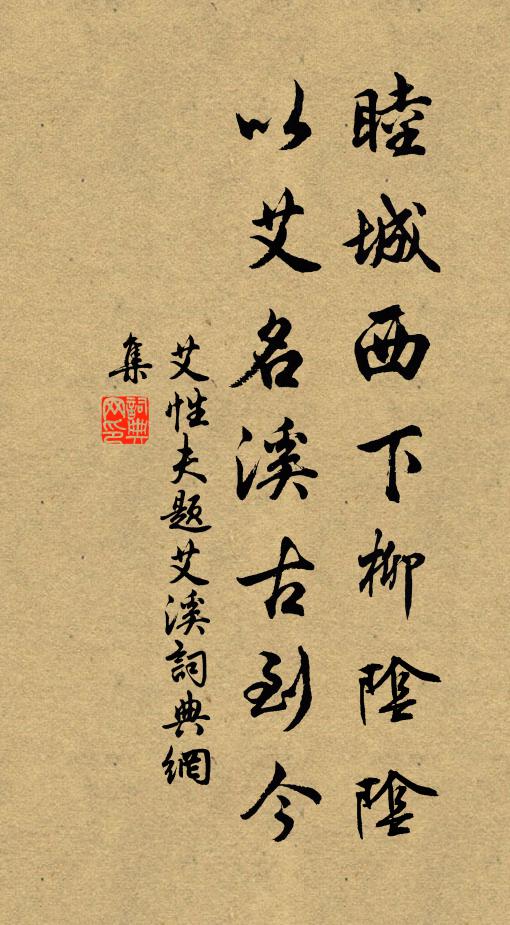 睦城西下柳陰陰
以艾名溪古到今
艾性夫題艾溪詞典網
集
詞典網印